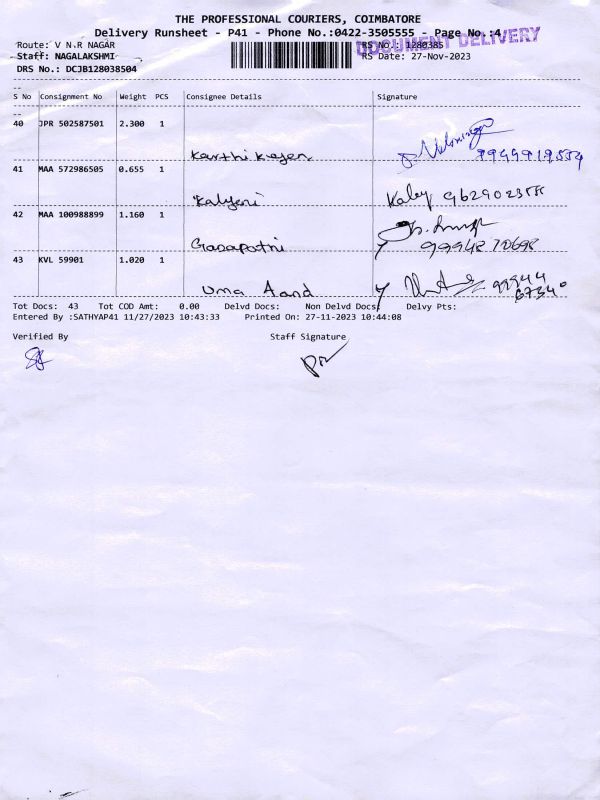 THE PROFESSIONAL COURIERS, COIMBATORE
Delivery Runsheet - P41 - Phone No.:0422-3505555 - Page No.:4
DOCUMENT DELIVERY
Route: V N.R NAGAR RS No.: 1280385
Staff: NAGALAKSHMI RS Date: 27-Nov-2023
DRS No.: DCJB128038504
S No Consignment No Weight PCS Consignee Details Signature
40 JPR 502587501 2.300 1
Karthikeyen
41 MAA 572986505 0.655 1
Kalyeni
42 MAA 100988899 1.160 1
Gasapathi 9994870698
43 KVL 59901 1.020 1
Uma Aand
Tot Docs: 43 Tot COD Amt: 0.00 Delvd Docs: Non Delvd Docs Delvy Pts:
Entered By :SATHYAP41 11/27/2023 10:43:33 Printed On: 27-11-2023 10:44:08
Verified By Staff Signature